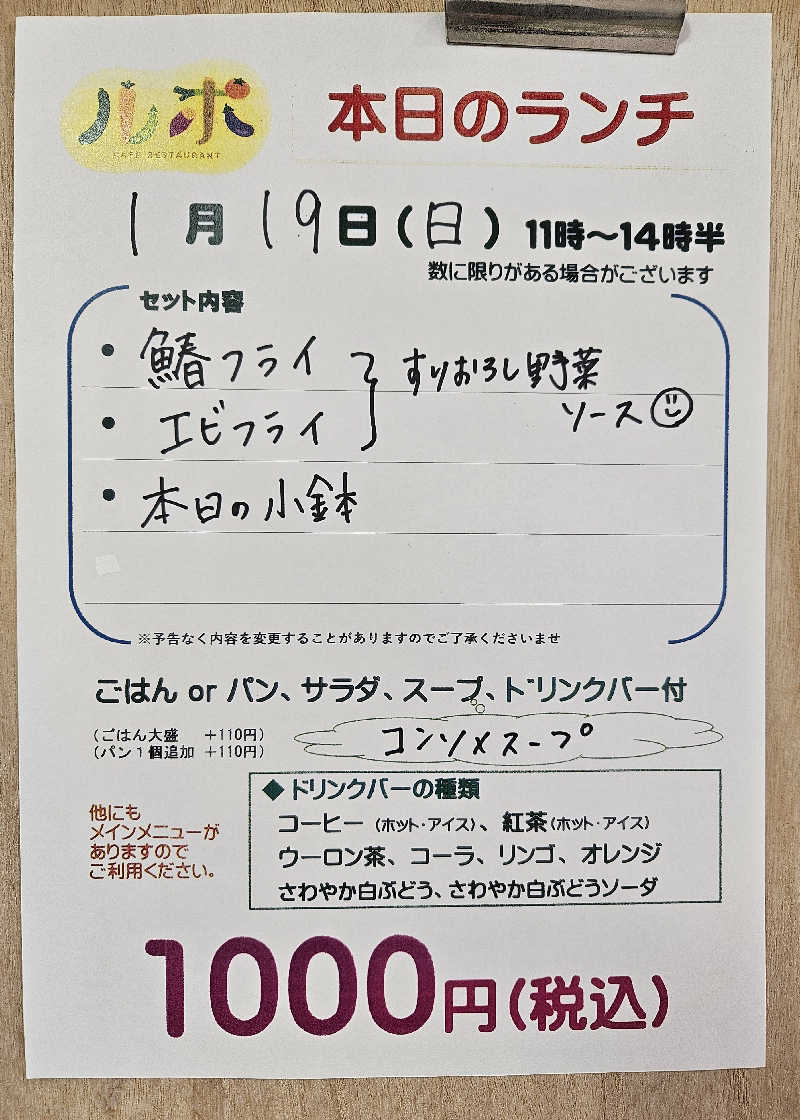 ルポ
CAFE RESTAURANT
本日のランチ
1月19日(日) 11時～14時半
数に限りがある場合がございます
セット内容
・鰆フライ
・エビフライ
すりおろし野菜
ソース
・本日の小鉢
※予告なく内容を変更することがありますのでご了承くださいませ
ごはん or パン、サラダ、スープ、ドリンクバー付
(ごはん大盛 +110円)
(パン1個追加 +110円)
コンソメスープ
他にも
メインメニューが
ありますので
ご利用ください。
◆ドリンクバーの種類
コーヒー(ホット・アイス)、紅茶(ホット・アイス)
ウーロン茶、コーラ、リンゴ、オレンジ
さわやか白ぶどう、さわやか白ぶどうソーダ
1000円(税込)